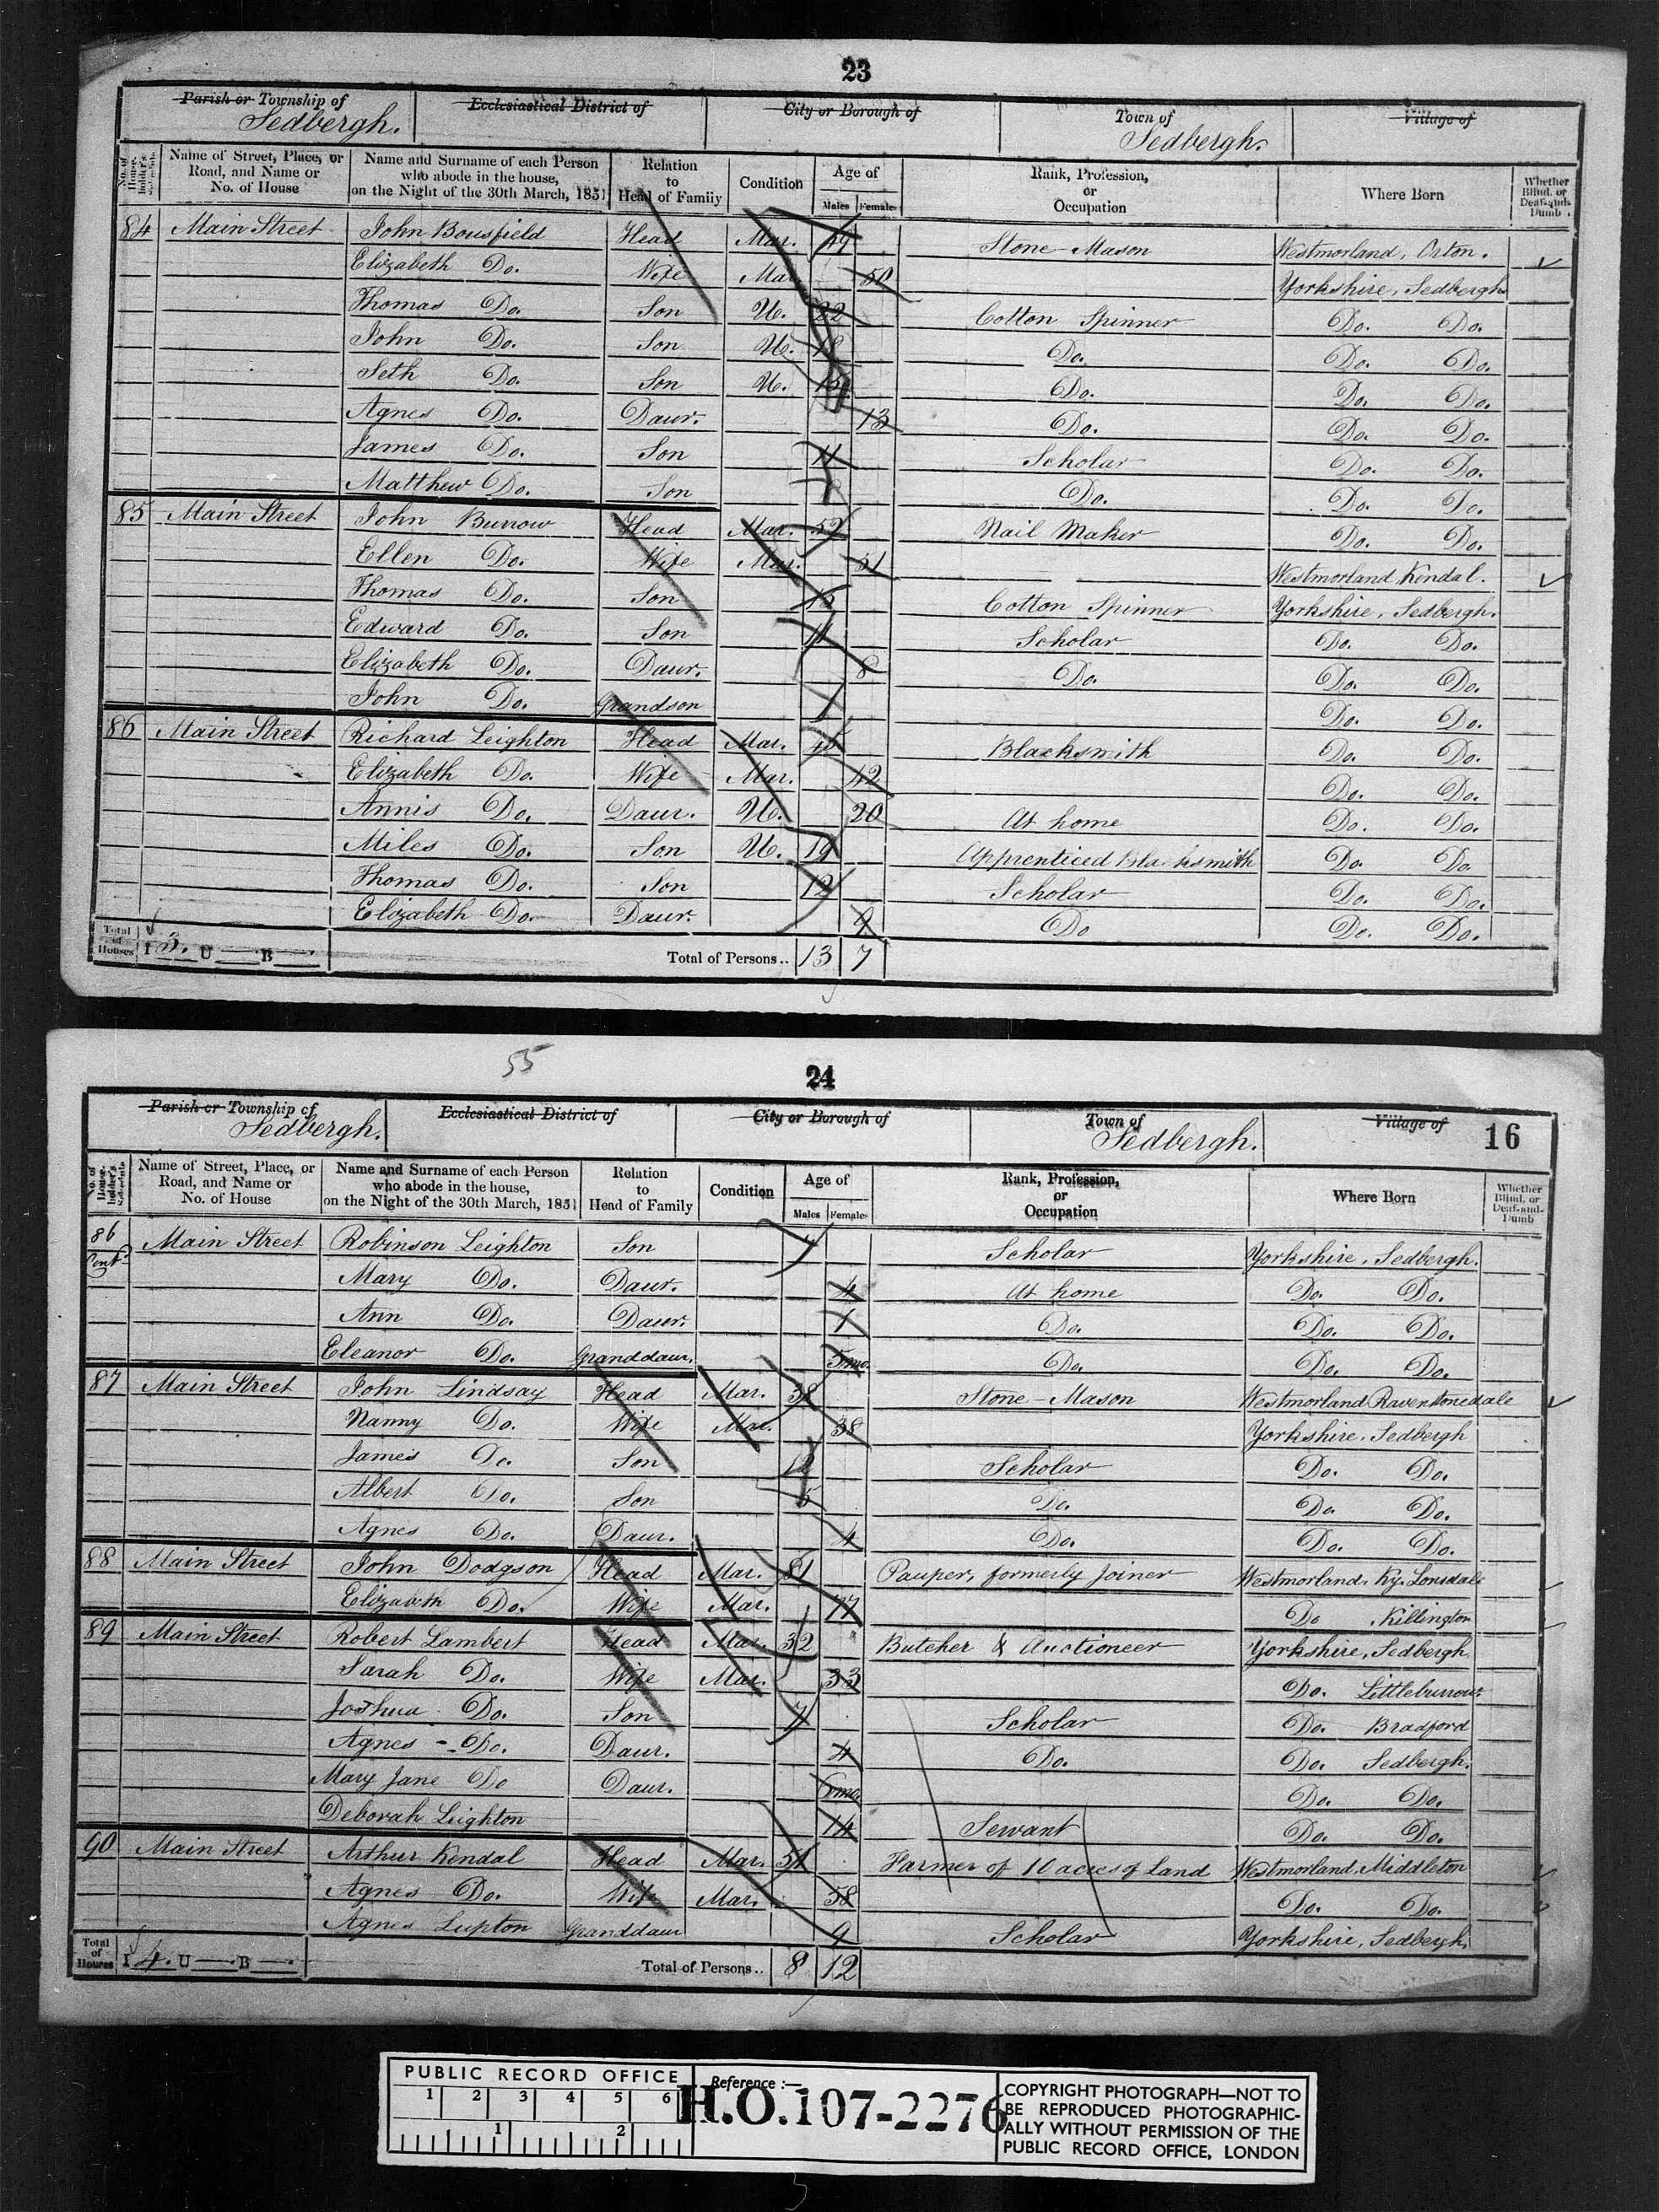 23
Parish or Township of Sedbergh. Ecclesiastical District of City or Borough of Town of Sedbergh. Village of
No. of House-holder's Schedule Name of Street, Place, or Road, and Name or No. of House Name and Surname of each Person who abode in the house, on the Night of the 30th March, 1851 Relation to Head of Family Condition Age of Males Females Rank, Profession, or Occupation Where Born Whether Blind, or Deaf-and-Dumb
84 Main Street John Bousfield Head Mar. 49 Stone-Mason Westmorland, Orton.
Elizabeth Do. Wife Mar. 50 Yorkshire, Sedbergh
Thomas Do. Son U. 22 Cotton Spinner Do. Do.
John Do. Son U. 18 Do. Do. Do.
Seth Do. Son U. 15 Do. Do. Do.
Agnes Do. Daur. 13 Do. Do. Do.
James Do. Son 11 Scholar Do. Do.
Matthew Do. Son 8 Do. Do. Do.
85 Main Street John Burrow Head Mar. 52 Nail Maker Do. Do.
Ellen Do. Wife Mar. 51 Westmorland Kendal.
Thomas Do. Son 15 Cotton Spinner Yorkshire, Sedbergh.
Edward Do. Son 11 Scholar Do. Do.
Elizabeth Do. Daur. 8 Do. Do. Do.
John Do. Grandson 1 Do. Do.
86 Main Street Richard Leighton Head Mar. 45 Blacksmith Do. Do.
Elizabeth Do. Wife Mar. 42 Do. Do.
Annis Do. Daur. U. 20 At home Do. Do.
Miles Do. Son U. 19 Apprenticed Blacksmith Do. Do.
Thomas Do. Son 12 Scholar Do. Do.
Elizabeth Do. Daur. 9 Do Do. Do.
Total of Houses I 3. U — B — Total of Persons.. 13 7
55
24
Parish or Township of Sedbergh. Ecclesiastical District of City or Borough of Town of Sedbergh. Village of 16
No. of House-holder's Schedule Name of Street, Place, or Road, and Name or No. of House Name and Surname of each Person who abode in the house, on the Night of the 30th March, 1851 Relation to Head of Family Condition Age of Males Females Rank, Profession, or Occupation Where Born Whether Blind, or Deaf-and-Dumb
86 Cont. Main Street Robinson Leighton Son 7 Scholar Yorkshire, Sedbergh.
Mary Do. Daur. 4 At home Do. Do.
Ann Do. Daur. 1 Do. Do. Do.
Eleanor Do. Granddaur. 5mo. Do. Do. Do.
87 Main Street John Lindsay Head Mar. 38 Stone-Mason Westmorland Ravenstonedale
Nanny Do. Wife Mar. 38 Yorkshire, Sedbergh
James Do. Son 12 Scholar Do. Do.
Albert Do. Son 5 Do. Do. Do.
Agnes Do. Daur. 4 Do. Do. Do.
88 Main Street John Dodgson Head Mar. 81 Pauper, formerly Joiner Westmorland, Ky. Lonsdale
Elizabeth Do. Wife Mar. 77 Do , Killington
89 Main Street Robert Lambert Head Mar. 32 Butcher & Auctioneer Yorkshire, Sedbergh
Sarah Do. Wife Mar. 33 Do. Littleburrow
Joshua Do. Son 7 Scholar Do. Bradford
Agnes Do. Daur. 4 Do. Do. Sedbergh.
Mary Jane Do Daur. 6mo. Do. Do.
Deborah Leighton 14 Servant Do. Do.
90 Main Street Arthur Kendal Head Mar. 51 Farmer of 10 acres of Land Westmorland, Middleton
Agnes Do. Wife Mar. 58 Do. Do.
Agnes Lupton Granddaur 9 Scholar Yorkshire, Sedbergh.
Total of Houses I 4. U — B — Total of Persons.. 8 12
PUBLIC RECORD OFFICE
1 2 3 4 5 6
1 2
Reference :—
H.O. 107-2276
COPYRIGHT PHOTOGRAPH—NOT TO
BE REPRODUCED PHOTOGRAPHIC-
ALLY WITHOUT PERMISSION OF THE
PUBLIC RECORD OFFICE, LONDON